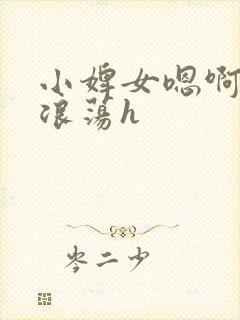 小婢女嗯啊
浪荡h
岑二少